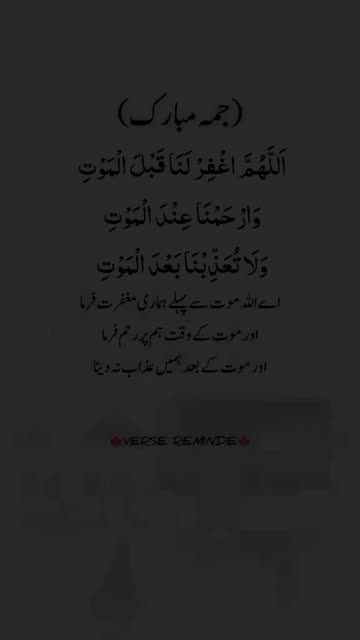 (جمہ مبارک)
اَللَّهُمَّ اغْفِرْ لَنَا قَبْلَ الْمَوْتِ
وَارْحَمْنَا عِنْدَ الْمَوْتِ
وَلَا تُعَذِّبْنَا بَعْدَ الْمَوْتِ
اے اللہ موت سے پہلے ہماری مغفرت فرما
اور موت کے وقت ہم پر رحم فرما
اور موت کے بعد ہمیں عذاب نہ دینا
🍁VERSE REMINDE🍁